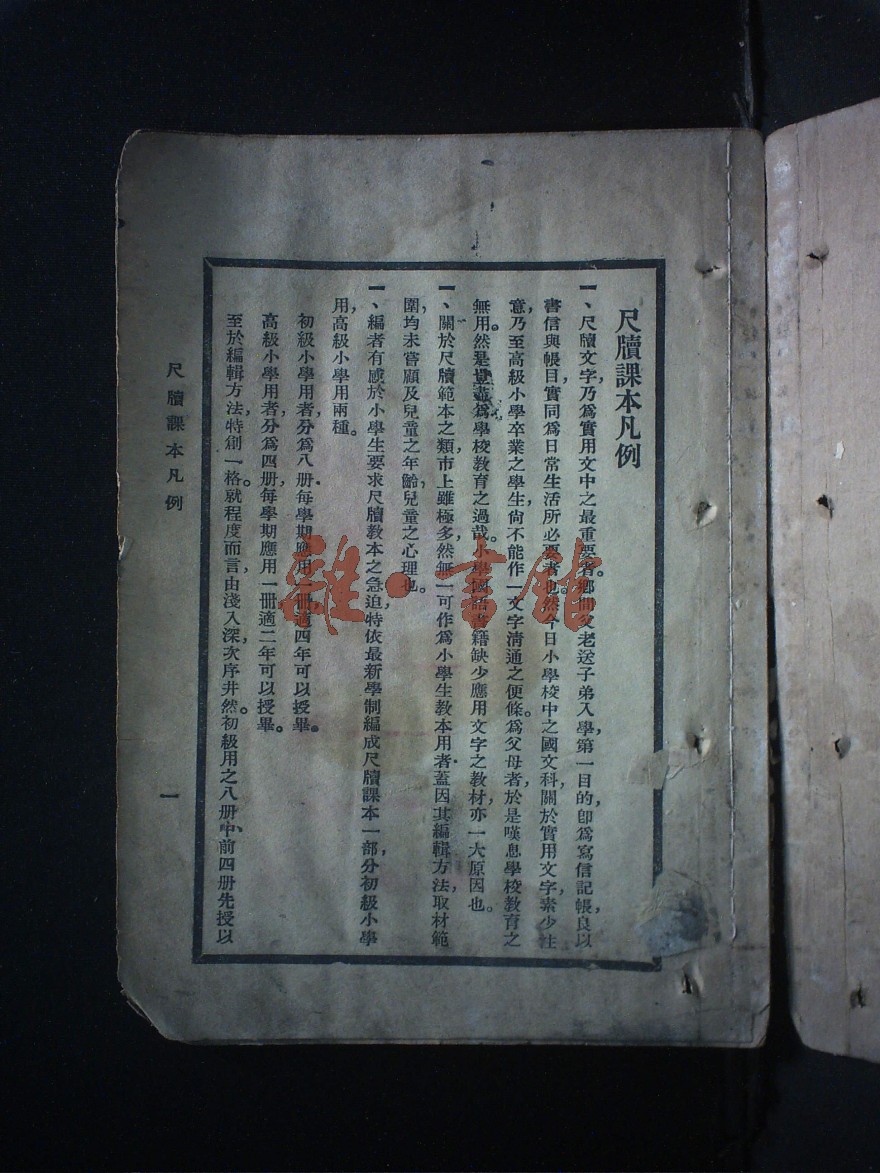 尺牘課本凡例
一、尺牘文字，乃爲實用文中之最重要者。鄉間父老送子弟入學，第一目的，卽爲寫信記帳，良以
書信與帳目，實同爲日常生活所必要者也。然今日小學校中之國文科，關於實用文字，素少注
意，乃至高級小學卒業之學生，尙不能作一文字清通之便條。爲父母者，於是嘆息學校教育之
無用。然是豈盡爲學校教育之過哉。小學國語書籍缺少應用文字之教材，亦一大原因也。
一、關於尺牘範本之類，市上雖極多，然無一可作爲小學生教本用者，蓋因其編輯方法，取材範
圍，均未嘗顧及兒童之年齡，兒童之心理也。
一、編者有感於小學生要求尺牘教本之急迫，特依最新學制，編成尺牘課本一部，分初級小學
用，高級小學用兩種。
初級小學用者，分爲八册，每學期應用一冊，適四年可以授畢。
高級小學用者，分爲四册，每學期應用一冊，適二年可以授畢。
至於編輯方法，特創一格。就程度而言，由淺入深，次序井然。初級用之八册中，前四册先授以
尺牘課本凡例
一
雜·書館